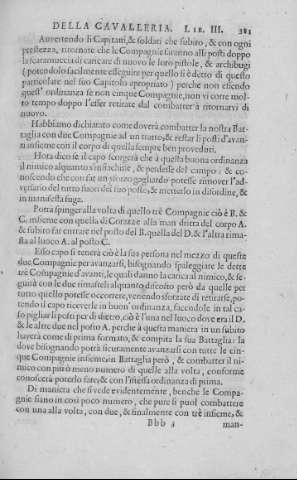 DELLA CAVALLERIA. LIB. III. 381
Auvertendo li Capitani, & soldati che subito, & con ogni
prestezza, ritornate che le Compagnie saranno alli posti doppo
la scaramucci di caricare di nuovo le loro pistole, & archibugi
(potendolo facilmente esseguire per quello si è detto di questo
particolare nel suo Capitolo apropriato) perche non essendo
quest' ordinanza se non cinque Compagnie, non vi corre mol-
to tempo doppo l'esser retirate dal combatter à ritornarvi di
nuovo.
Habbiamo dichiarato come doverà combatter la nostra Bat-
taglia con due Compagnie ad un tratto, & restar li posti d'avan-
ti insieme con il corpo di quella sempre ben proveduti.
Hora dico se il capo scorgerà che à questa buona ordinanza
il nimico alquanto s'instachine, & perdesse del campo: & co-
noscendo che con far un sforzo gagliardo potesse rimover l'ad-
versario del tutto fuori dei suo posto, & metterlo in disordine, &
in manifesta fuga.
Potrà spinger alla volta di quello trè Compagnie ciò è B. &
C. insieme con quella di Corazze alla man dritta del corpo A.
& subito far entrare nel posto del B. quella del D. & l'altra rima-
sta al luoco A. al posto C.
Esso capo si tenerà ciò è la sua persona nel mezzo di queste
due Compagnie per avanzarsi, bisognando spaleggiare le dette
trè Compagnie d'avanti, le quali danno la carica al nimico, & se-
guirà con le due rimasteli alquanto discosto però da quelle per
tutto quello potesse occorrere, venendo sforzate di retirarse, po-
tendo il capo riceverle in buon' ordinanza, facendole in tal ca-
so pigliar li posti per di dietro, ciò è l'una nel luoco dove era il D.
& le altre due nel posto A. perche à questa maniera in un subito
haverà come di prima formato, & compita la sua Battaglia: la
dove bisognando potrà sicuramente avanzarsi con tutte le cin-
que Compagnie insieme, in Battaglia però, & combatter il ni-
mico con più ò meno numero di quelle alla volta, conforme
conoscerà poterlo fare, & con l'istessa ordinanza di prima.
Di maniera che si vede evidentemente, benche le Compa-
gnie siano in così poco numero, che pure si puol combattere
con una alla volta, con due, & finalmente con trè insieme, &
Bbb 3 man-